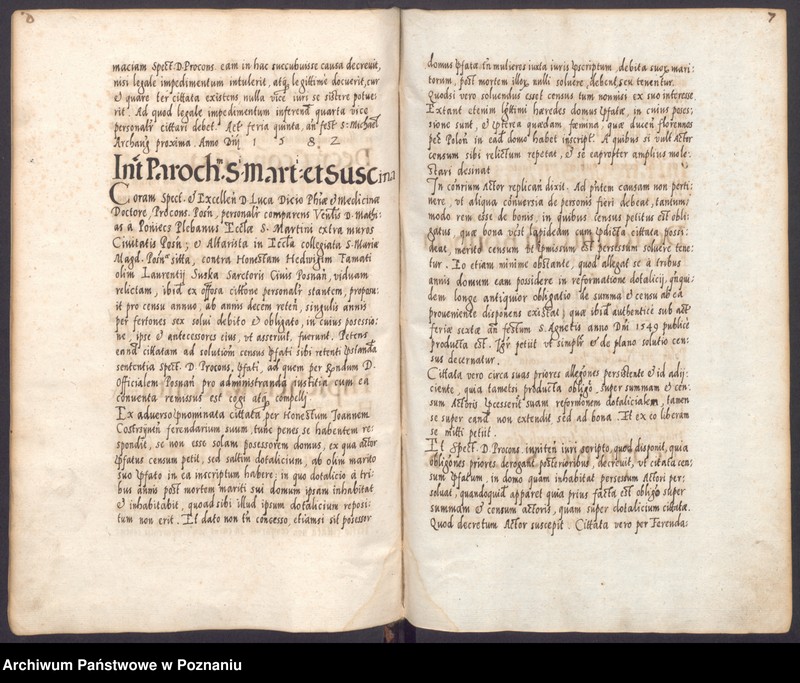 maciam Spect. D. Procons. eam in hac succubuisse causa decrevit,
nisi legale impedimentum intulerit, atq; legittime docuerit, cur
& quare ter cittata existens nulla vice iuri se sistere potue:
rit. Ad quod legale impedimentum inferend quarta vice
personalr cittari debet. Act feria quinta, an fest S: Michael
Archang proxima. Anno Dni 1 5 8 2
Int Paroch. S. Mart: et Suscina
Coram Spect. & Excellen D. Luca Dicio Phiæ & Medicinæ
Doctore, Procons. Posn, personalr comparens Venlis D. Mathi:
as a Poniecz Plebanus Ecclæ S. Martini extra muros
Civitatis Posn; & Altarista in Eccla collegiata S. Mariæ
Magd. Posn sitta, contra Honestam Hedwigim Famati
olim Laurentij Suska Sartoris Civis Posnan, viduam
relictam, ibid ex offosa cittone personalr stantem, proposu:
it pro censu annuo, ab annis decem reten, singulis annis
per fertones sex solui debito & obligato, in cuius posessio:
ne, ipse & antecessores eius, ut asseruit, fuerunt. Petens
eand cittatam ad solution census pfati sibi retenti
sententia Spect. D. Procons. pfati, ad quem per Rndum D.
Officialem Posnan pro administranda iustitia cum ea
conuenta remissus est cogi atq; compelli
Ex aduerso pnominata cittata per Honestum Joannem
ferendarium suum, tunc penes se habentem re:
spondit, se non esse solam posessorem domus, ex qua actor
pfatus censum petit, sed saltim dotalicium, ab olim marito
suo pfato in ea inscriptum habere: in quo dotalicio a tri:
bus annis post mortem mariti sui domum ipsam inhabitat
& inhabitabit, quoad sibi illud ipsum dotalicium reposi:
tum non erit. Et dato non tn concesso, etiamsi sit posessor
7
domus pfatæ tn mulieres iuxta iuris pscriptum, debita suox mari:
torum, post mortem illox, nulli soluere, debent, seu tenentur.
Quodsi vero soluendus esset census tum nonnisi ex suo interesse.
Extant etenim legittimi hæredes domus pfatæ, in cuius poses:
sione sunt, & pterea quædam fœmina, quæ ducen florennos
pec Polon in ead domo habet inscript. A quibus si vult Actor
censum sibi relictum repetat, & se eapropter amplius mole:
stari desinat
In conrium Actor replican dixit. Ad pntem causam non perti:
nere, ut aliqua conuersia de personis fieri debeat, tantum:
modo rem esse de bonis, in quibus census petitus est obli:
gatus, quæ bona vest lapideam cum pdicta cittata possi:
deat, merito censum ut pmissum est persessum soluere tene:
tur. Eo etiam minime obstante, quod allegat se a tribus
annis domum eam possidere in reformatione dotalicij, qnqui:
dem longe antiquior obligatio de summa & censu ab ea
proueniente disponens existat; quæ ibid authentice sub act
feria sextæ an festum S. Agnetis anno Dni 1549 publice
producta est. Igr petiit ut simplr & de plano solutio cen:
sus decernatur.
Cittata vero circa suas priores allegones persistente & id adij:
ciente, quia tametsi producta obligo, super summam & cen:
sum Actoris pcesserit suam reformonem dotaliciale, tamen
se super eand non extendit sed ad bona. Et ex eo liberam
se mitti petiit.
Et Spect. D. Procons. inniten iuri scripto, quod disponit, quia
obligones priores derogant posterioribus, decreuit, ut citata cen:
sum pfatum, in domo quam inhabitat persessum Actori per:
soluat, quandoquid apparet quia prius facta est obligo super
summam & censum actoris, quam super dotalicium cittatæ.
Quod decretum Actor suscepit. Cittata vero per Ferenda:
Archiwum Państwowe w Poznaniu